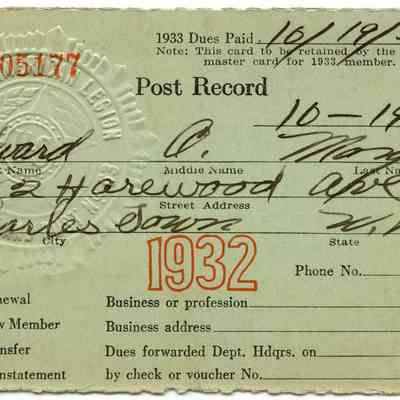 1933 Dues Paid. 10/19/3
Note: This card to be retained by the
master card for 1933 member.
05177
Post Record
10-19
ward O.
Name Middle Name Last Na
2 Harewood Ave
Street Address
harles Town W.
City State
1932
Phone No.
newal Business or profession
w Member Business address
nsfer Dues forwarded Dept. Hdqrs. on
nstatement by check or voucher No.
LEGION